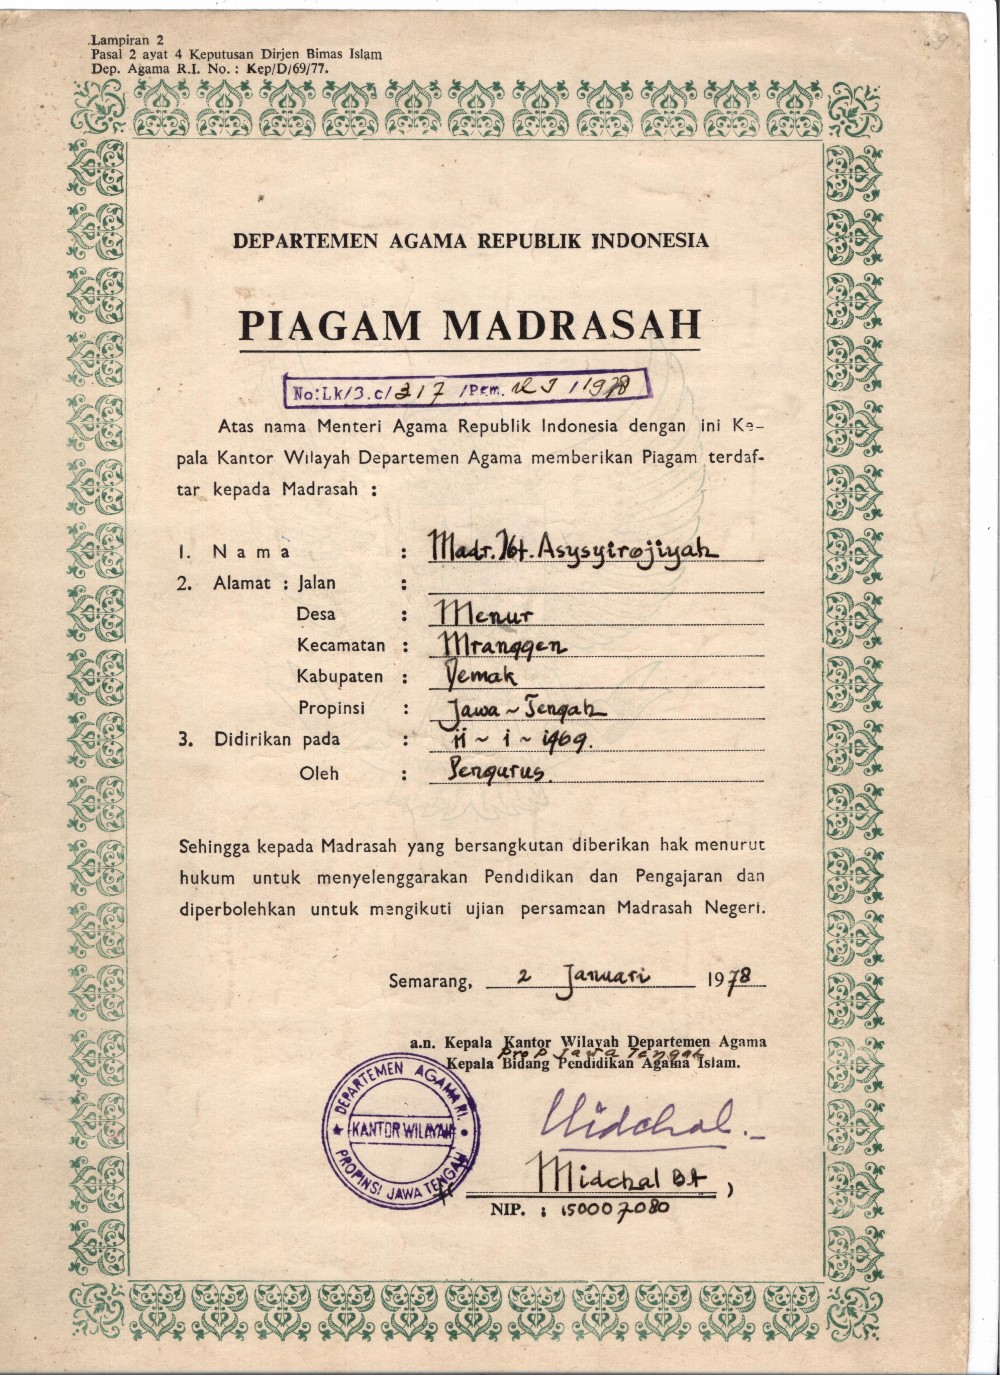 Lampiran 2
Pasal 2 ayat 4 Keputusan Dirjen Bimas Islam
Dep. Agama R.I. No. : Kep/D/69/77.
DEPARTEMEN AGAMA REPUBLIK INDONESIA
PIAGAM MADRASAH
No:Lk/3.c/317 /Pgm. /1978
Atas nama Menteri Agama Republik Indonesia dengan ini Ke-
pala Kantor Wilayah Departemen Agama memberikan Piagam terdaf-
tar kepada Madrasah :
1. N a m a : Madr. Ibt. Asysyirojiyah
2. Alamat : Jalan :
Desa : Menur
Kecamatan : Mranggen
Kabupaten : Demak
Propinsi : Jawa ~ Tengah
3. Didirikan pada : 11 ~ 1 ~ 1969.
Oleh : Pengurus.
Sehingga kepada Madrasah yang bersangkutan diberikan hak menurut
hukum untuk menyelenggarakan Pendidikan dan Pengajaran dan
diperbolehkan untuk mengikuti ujian persamaan Madrasah Negeri.
Semarang, 2 Januari 1978
a.n. Kepala Kantor Wilayah Departemen Agama
Prop Jawa Tengah
Kepala Bidang Pendidikan Agama Islam.
DEPARTEMEN AGAMA RI.
KANTOR WILAYAH
PROPINSI JAWA TENGAH
Midchal.
Midchal BA
NIP. : 150007080